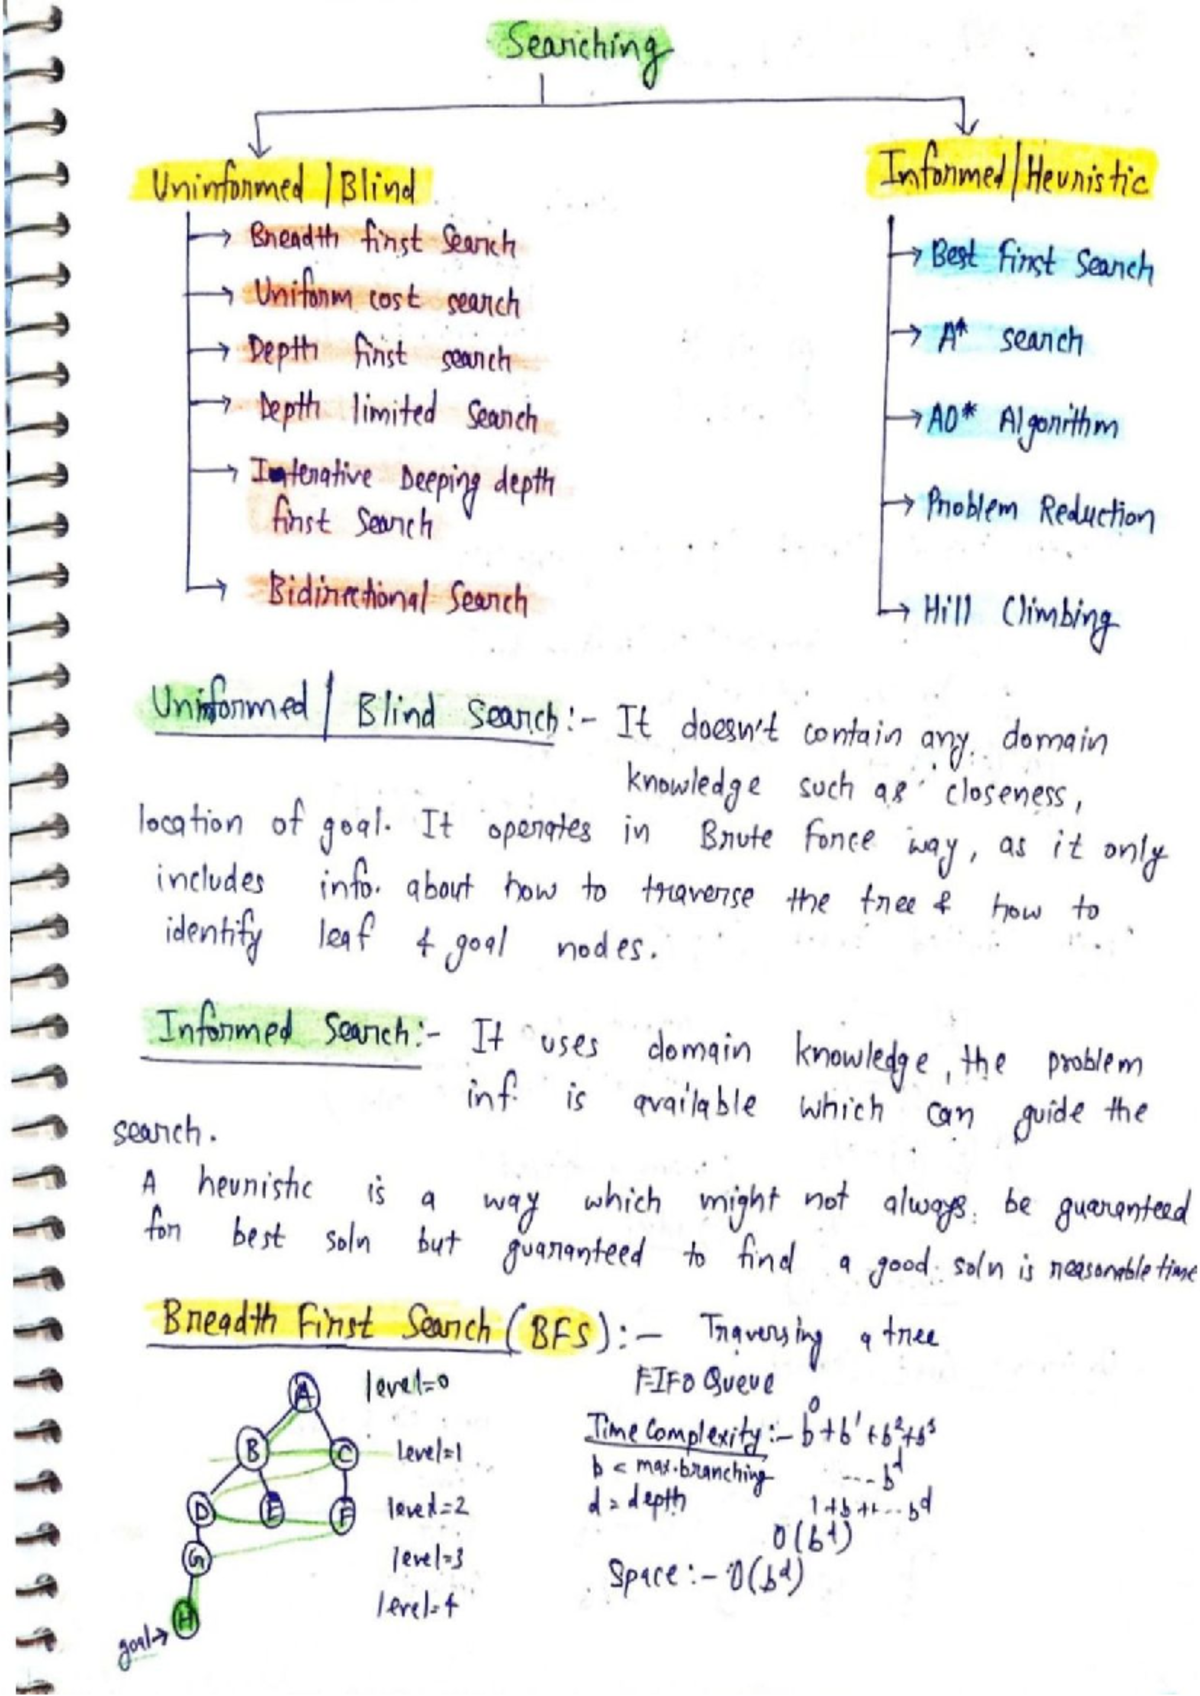 Searching
Uninformed / Blind
Informed / Heuristic
→ Breadth first Search
→ Uniform cost search
→ Depth first search
→ Depth limited Search
→ Interative Deeping depth
first Search
→ Bidirectional Search
→ Best First Search
→ A* search
→ AO* Algorithm
→ Problem Reduction
→ Hill Climbing
Uninformed / Blind Search :- It doesn't contain any domain
knowledge such as closeness,
location of goal. It operates in Brute Force way, as it only
includes info. about how to traverse the tree & how to
identify leaf & goal nodes.
Informed Search :- It uses domain knowledge, the problem
inf. is available which can guide the
search.
A heuristic is a way which might not always be guaranteed
for best soln but guaranteed to find a good soln is reasonable time
Breadth First Search (BFS) :- Traversing a tree
A level=0
B C level=1
D E F level=2
G level=3
H level=4
goal→
FIFO Queue
Time Complexity :- b⁰+b¹+b²+b³
b = max. branching ----b^d
d = depth 1+b+...b^d
O(b^d)
Space :- O(b^d)